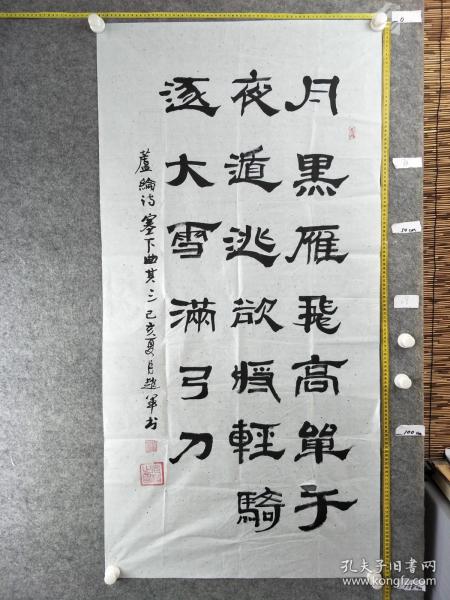 月黑雁飛高單于
夜遁逃欲將輕騎
逐大雪滿弓刀
蘆綸诗塞下曲其三己亥夏月趙軍书
0
50cm
100cm
孔夫子旧书网
www.kongfz.com